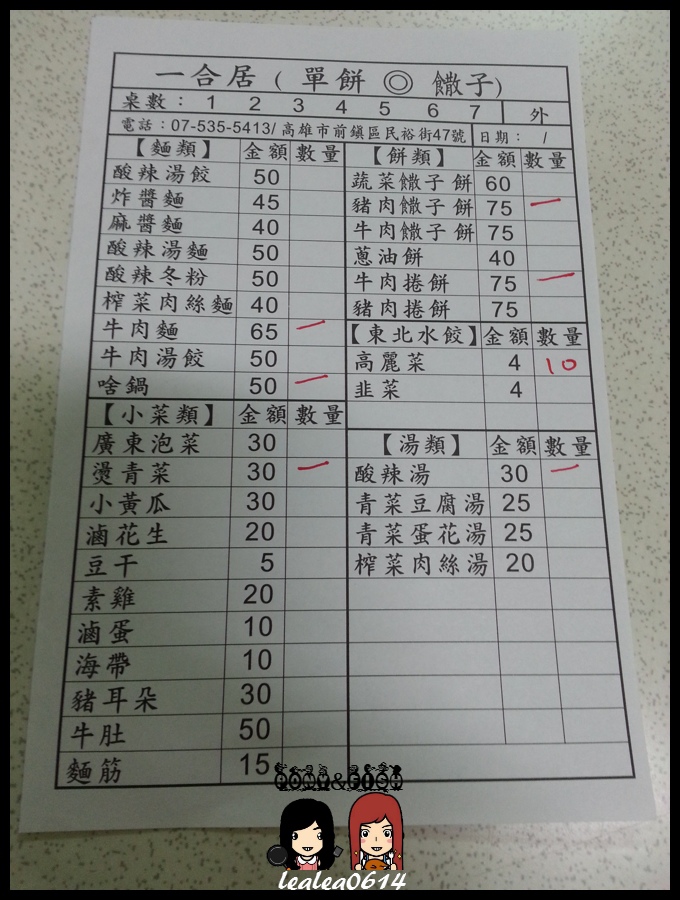 一合居 ( 單餅 ◎ 饊子)
桌數： 1 2 3 4 5 6 7 外
電話：07-535-5413/ 高雄市前鎮區民裕街47號 日期： /
【麵類】 金額 數量
酸辣湯餃 50
炸醬麵 45
麻醬麵 40
酸辣湯麵 50
酸辣冬粉 50
榨菜肉絲麵 40
牛肉麵 65 一
牛肉湯餃 50
啥鍋 50 一
【小菜類】 金額 數量
廣東泡菜 30
燙青菜 30 一
小黃瓜 30
滷花生 20
豆干 5
素雞 20
滷蛋 10
海帶 10
豬耳朵 30
牛肚 50
麵筋 15
【餅類】 金額 數量
蔬菜饊子餅 60
豬肉饊子餅 75 一
牛肉饊子餅 75
蔥油餅 40
牛肉捲餅 75 一
豬肉捲餅 75
【東北水餃】 金額 數量
高麗菜 4 10
韭菜 4
【湯類】 金額 數量
酸辣湯 30 一
青菜豆腐湯 25
青菜蛋花湯 25
榨菜肉絲湯 20
lealea0614